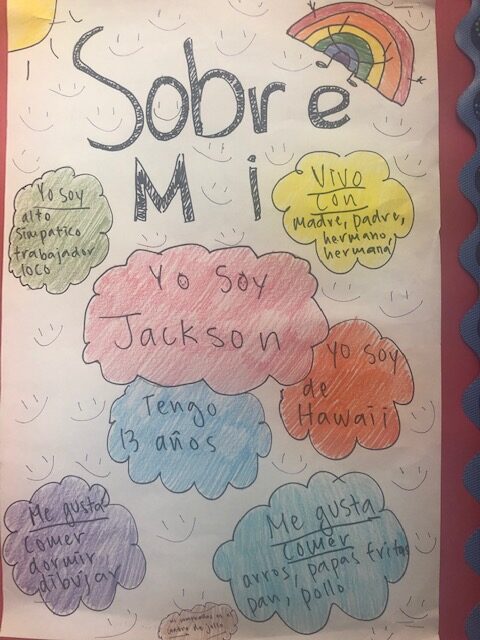 Sobre
Mi
Yo soy
alto
simpatico
trabajador
loco
Vivo
con
madre, padre,
hermano,
hermana
Yo soy
Jackson
Yo soy
de
Hawaii
Tengo
13 años
Me gusta
comer
dormir
dibujar
Me gusta
comer
arros, papas fritas
pan, pollo
mi cumpleaños es el
de julio